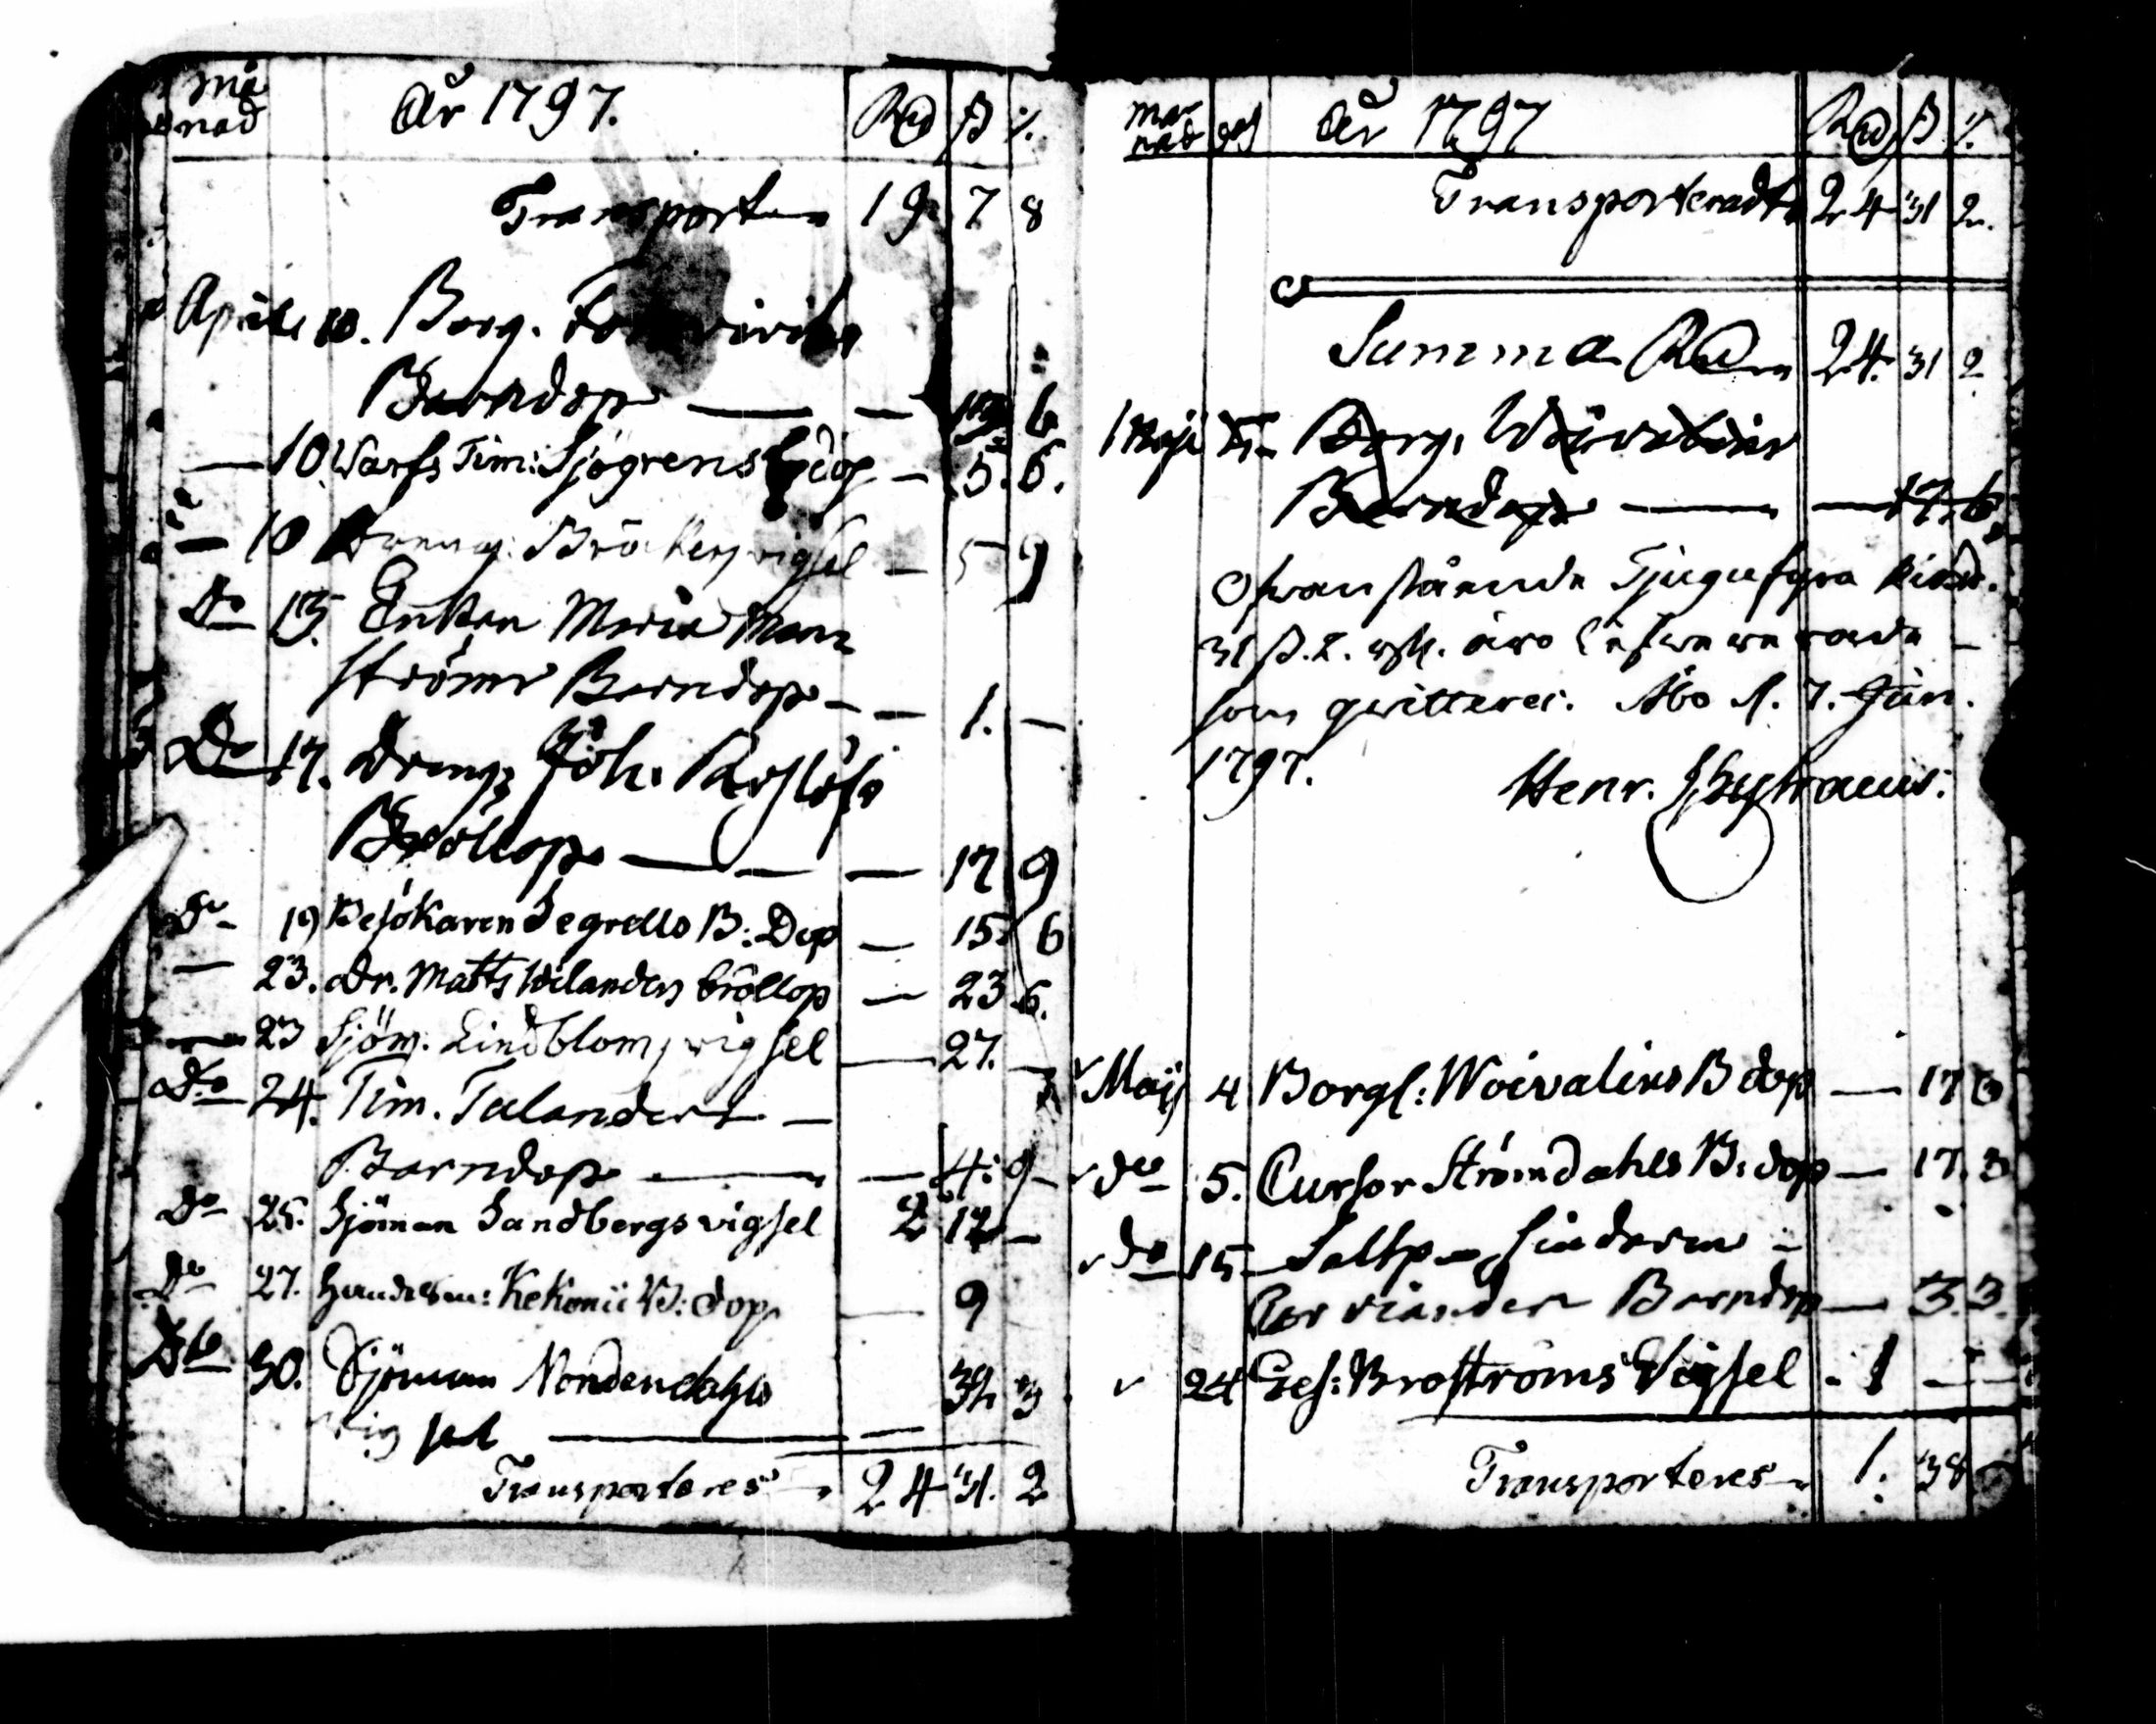 må
nad År 1797. Rd ß
Transport 19 7 8
Aprill 10. Borg.
Barndop — — 6
— 10. Warfs Tim: Sjögrens dop — 5. 6.
— 10 vigsel — 5 9
Do 13. Enkan Maria Man
ströms Barndop — — 1. —
Do 17. Dreng Joh:
Bröllop — — 17 9
Do 19 Besökaren Segrells B: Dop — 15 6
— 23. Dr. Matts Wilanders bröllop — 23 6.
— 23 Sjöm. Lindbloms vigsel — 27. —
Do 24. Tim. Tulanders —
Barndop — — 4: 9
Do 25. Sjöman Sandbergs vigsel 2 12 —
Do 27. Handelsm: Kekonii B: dop — 9
Do 30. Sjöman Nordendahls 32 3
vigsel — —
Transporteres 24 31. 2
må
nad dag År 1797 Rd ß
Transporteradt 24 31 2.
Summa Rd 24. 31 2
Maji Borg.
Barndop — — 17. 6
Ofvanstående Tjugufyra Riksd.
31 ß. 2. äro
som qvitteres. Åbo d. 7. Jun.
1797. Henr.
Maij 4 Borgl: Woivalins B dop — 17 3
do 5. Cursor Strömdahls B: dop — 17. 3
do 15
Barndop — 3. 3.
24 Ges: Broströms Vigsel - 1 — —
Transporteres 1. 38